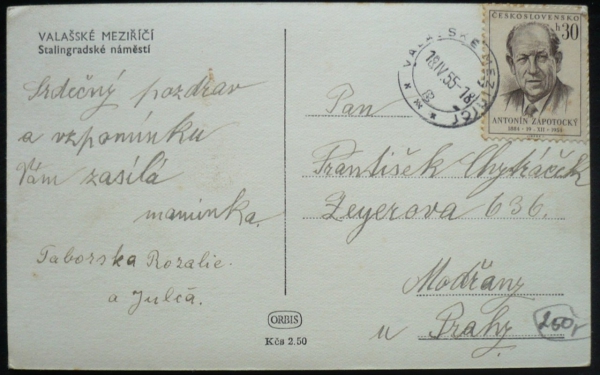 VALAŠSKÉ MEZIŘÍČÍ
Stalingradské náměstí
Srdečný pozdrav
a vzpomínku
Vám zasílá
maminka.
Taborska Rozalie.
a Julča.
ORBIS
Kčs 2.50
VALAŠSKÉ MEZIŘÍČÍ
18.IV.55-18
ČESKOSLOVENSKO
h 30
ANTONÍN ZÁPOTOCKÝ
1884 - 19 - XII - 1954
Pan
František Chytráček
Zeyerova 636.
Modřany
u Prahy